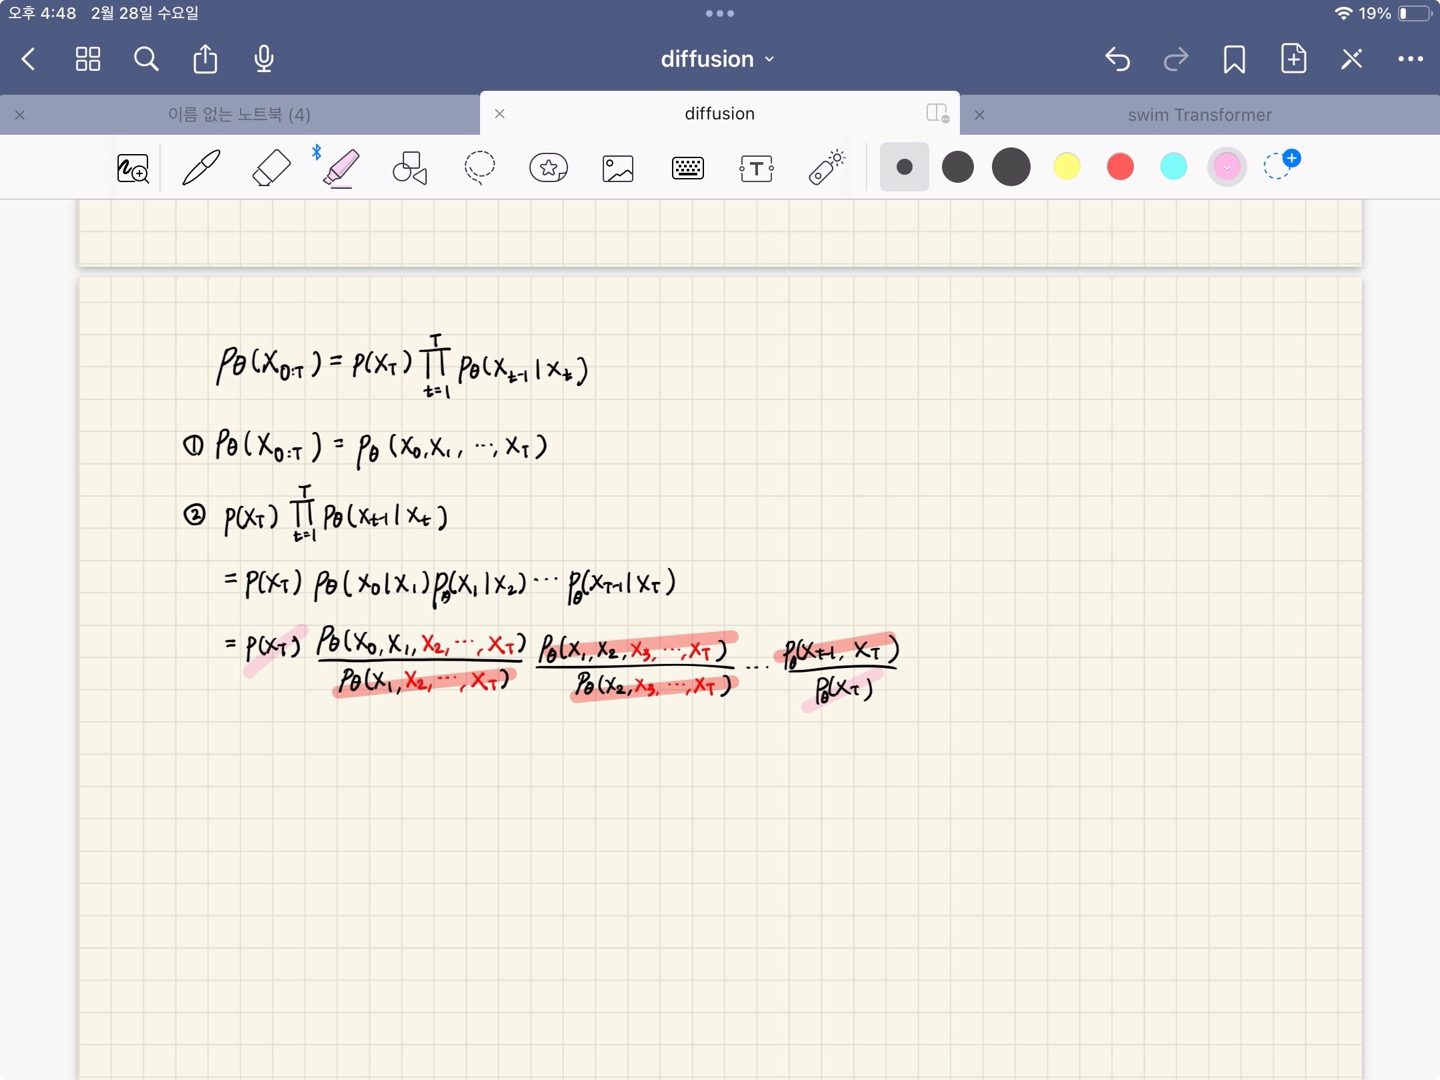 오후 4:48 2월 28일 수요일 19%
diffusion
이름 없는 노트북 (4) diffusion swim Transformer
Pθ(X0:T) = P(XT) ∏ t=1 T Pθ(Xt-1 | Xt)
① Pθ(X0:T) = Pθ(X0, X1, ⋯, XT)
② P(XT) ∏ t=1 T Pθ(Xt-1 | Xt)
= P(XT) Pθ(X0 | X1) Pθ(X1 | X2) ⋯ Pθ(XT-1 | XT)
= P(XT) Pθ(X0, X1, X2, ⋯, XT) / Pθ(X1, X2, ⋯, XT) Pθ(X1, X2, X3, ⋯, XT) / Pθ(X2, X3, ⋯, XT) ⋯ Pθ(Xt-1, XT) / Pθ(XT)